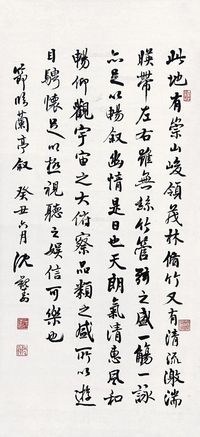 此地有崇山峻領茂林脩竹又有清流激湍
暎帶左右雖無絲竹管弦之盛一觴一詠
亦足以暢叙幽情是日也天朗氣清惠風和
暢仰觀宇宙之大俯察品類之盛所以遊
目騁懷足以極視聽之娛信可樂也
節臨蘭亭叙 癸丑六月 沈